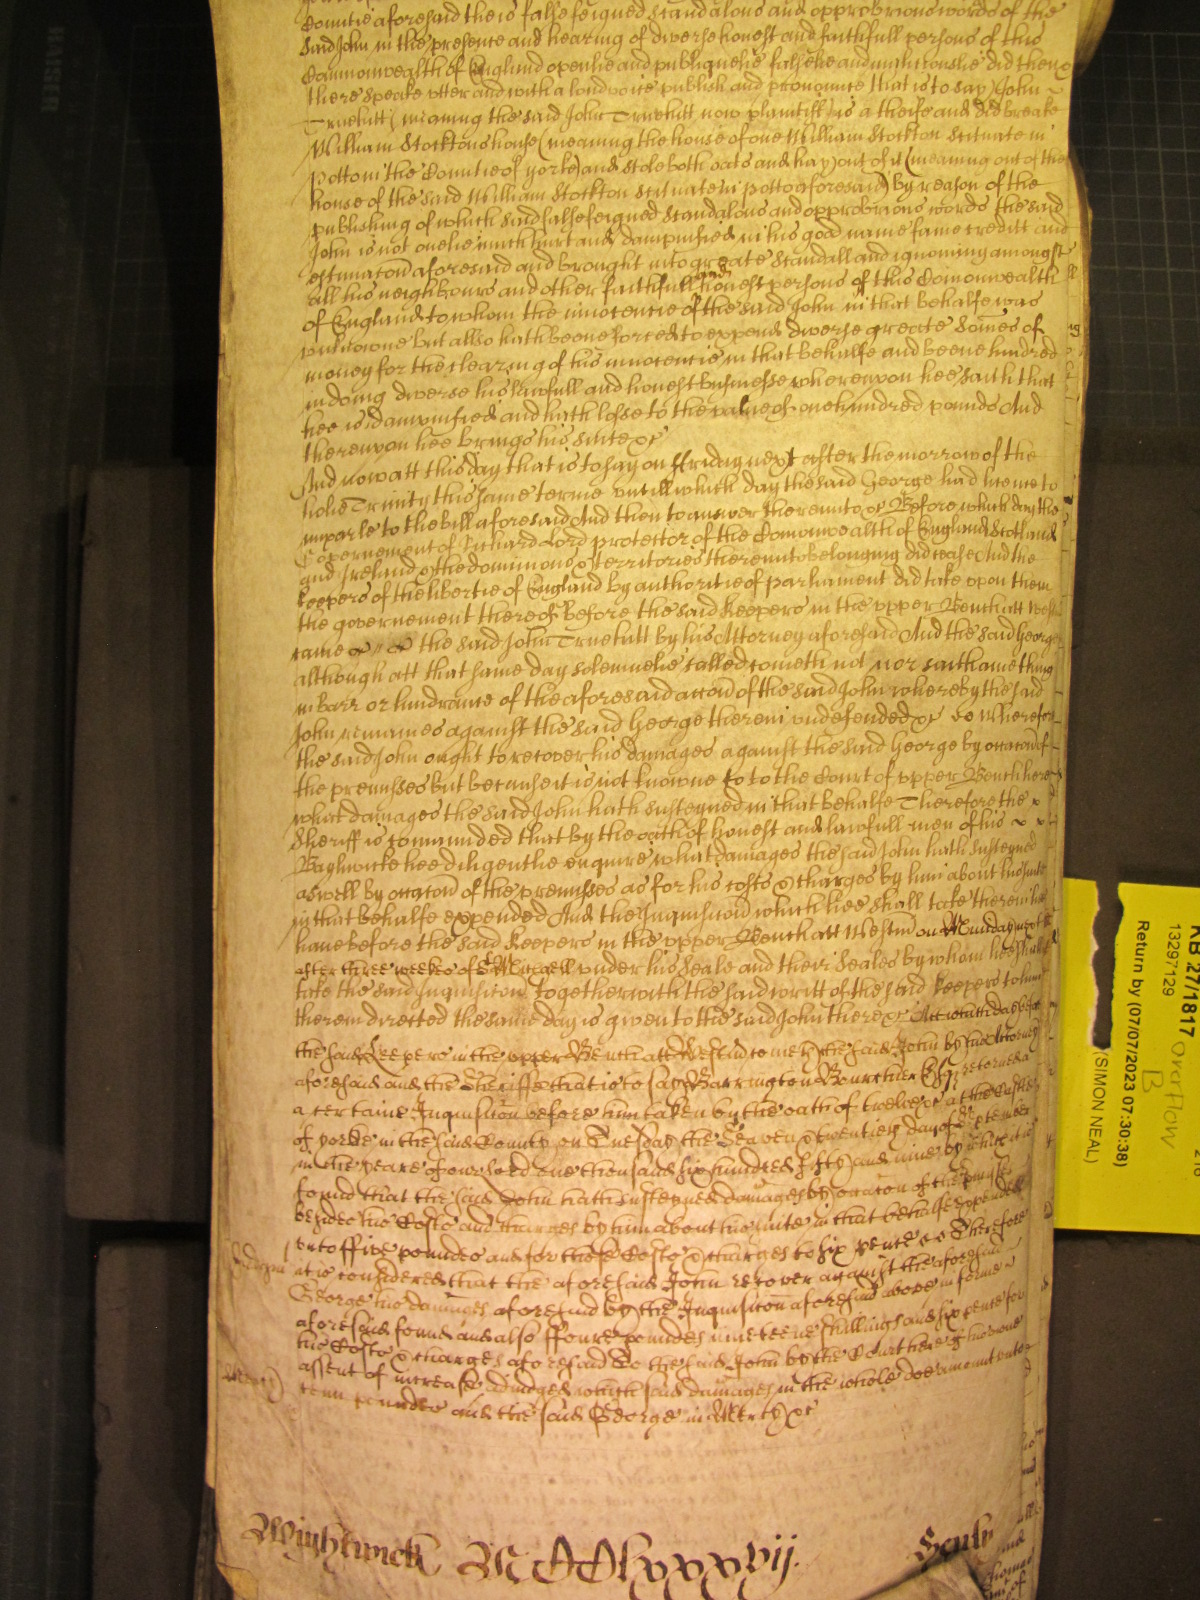 Countie aforesaid theis false feigned scandalous and opprobrious words of the
said John in the presence and hearing of diverse honest and faithfull persons of this
Commonwealth of England openlie and publiquelie falselie and malitiouslie did then &
there speake utter and with a loud voice publish and pronounce that is to say John
Truehitt (meaning the said John Truehitt now plaintiff) is a theife and did breake
William Stocktons house (meaning the house of one William Stockton scituate in
potto in the Countie of yorke) and stole both oats and hay out of it (meaning out of the
house of the said William Stockton scituate in potto aforesaid) by reason of the
publishing of which said false feigned scandalous and opprobrious words the said
John is not onelie much hurt and dampnified in his good name fame creditt and
estimacon aforesaid and brought into greate scandall and ignominy amongst
all his neighbours and other faithfull and honest persons of this Comonwealth
of England to whom the innocencie of the said John in that behalfe was
unknowne but allso hath beene forced to expend diverse greate somes of
money for the clearing of his innocencie in that behalfe and beene hindred
in doing diverse his lawfull and honest businesse whereupon hee saith that
hee is dampnified and hath losse to the value of one hundred pounds And
thereupon hee brings his suite &c
And now att this day that is to say on ffriday next after the morrow of the
holie Trinity this same terme untill which day the said George had licence to
imparle to the bill aforesaid And then to answer thereunto &c Before which day the
Governement of Richard Lord protector of the Comonwealth of England Scotland
and Ireland & the dominions & territories thereunto belonging did cease And the
keepers of the libertie of England by authoritie of parliament did take upon them
the governement thereof before the said keepers in the upper Bench att Westm
came &c the said John Truehitt by his Attorney aforesaid And the said George
although att that same day solemnelie called cometh not nor saith anie thing
in barr or hindrance of the aforesaid accon of the said John whereby the said
John remaines against the said George therein undefended &c so Wherefore
the said John ought to recover his damages against the said George by occacon of
the premisses but because it is not knowne to to the Court of upper Bench here
what damages the said John hath susteyned in that behalfe Therefore the
Sheriff is comanded that by the oath of honest and lawfull men of his
Bayliwicke hee diligentlie enquire what damages the said John hath susteyned
aswell by occacon of the premisses as for his costs & charges by him about his suite
in that behalfe expended And the Inquisicon which hee shall take therein hee
have before the said keepers in the upper Bench att Westm on Munday next
after three weekes of St Michaell under his seale and their seales by whom hee shall
take the said Inquisicon together with the said writt of the said keepers to him
therein directed the same day is given to the said John there &c Att which day before
the said keepers in the upper Bench att Westm cometh the said John by his Attorney
aforesaid and the Sheriffe that is to say Barrington Bourchier Esqr returned
a certaine Inquisicon before him taken by the oath of twelve &c at the Castle
of yorke in the said County on Tuesday the Seaven & twentieth day of September
in the yeare of our lord one thousand six hundred fifty and nine by which it is
found that the said John hath susteyned damages by occacon of the premisses
besides his Costs and charges by him about his suite in that behalfe expended
unto ffive pounds and for those Costs & charges to six pence Therefore
it is considered that the aforesaid John recover against the aforesaid
George his damages aforesaid by the Inquisicon aforesaid above in forme
aforesaid found and also ffoure poundes nineteene shillings and six pence for
his Costs & charges aforesaid to the said John by the Court here of his owne
assent of increase adiudged which said damages in the whole doe amount unto
tenn poundes and the said George in Mercy &c
Wightwick MCClxxxvij.
KB 27/1817
overflow
B
13297129
Return by (07/07/2023 07:30:38)
(SIMON NEAL)